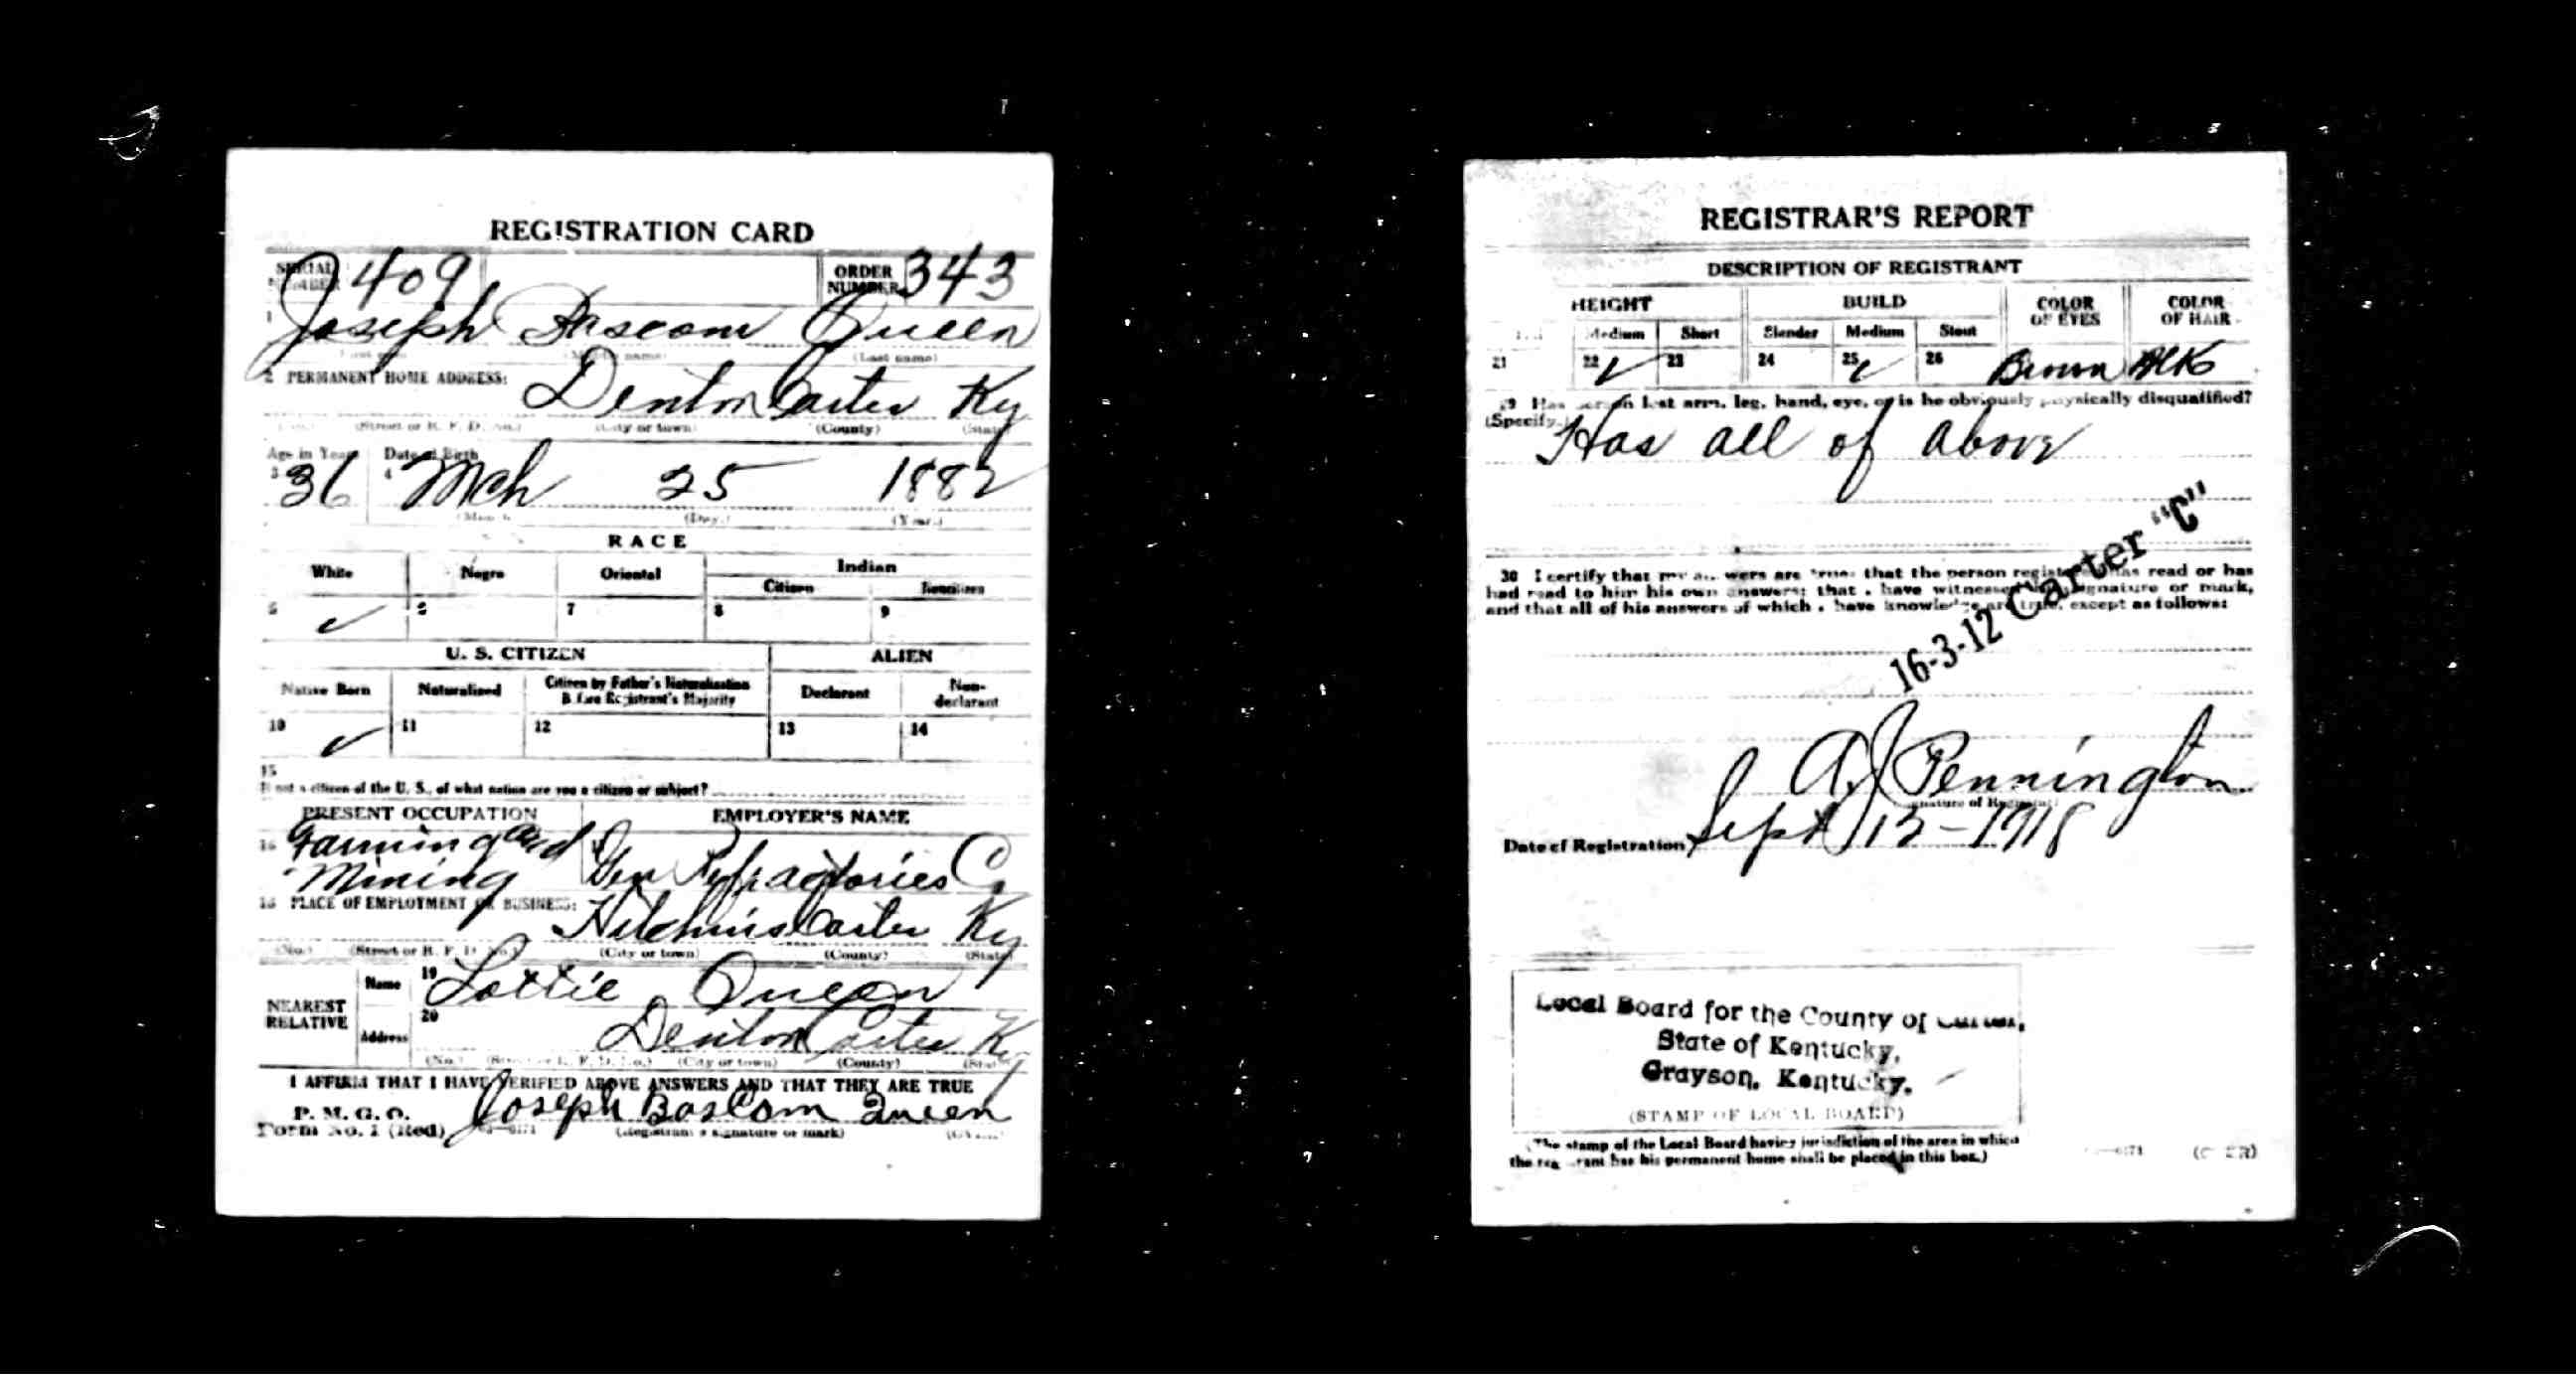 REGISTRATION CARD
SERIAL NUMBER 409 ORDER NUMBER 343
1 Joseph Bascom Queen
(Middle name) (Last name)
2 PERMANENT HOME ADDRESS: Denton Carter Ky
(Street or R. F. D. No.) (City or town) (County) (State)
Age in Years Date of Birth
3 36 4 Mch 25 1882
(Month) (Day.) (Year.)
RACE
White Negro Oriental Indian
Citizen Noncitizen
5 ✓ 6 7 8 9
U. S. CITIZEN ALIEN
Native Born Naturalized Citizen by Father's Naturalization Before Registrant's Majority Declarant Non-declarant
10 ✓ 11 12 13 14
15
If not a citizen of the U. S., of what nation are you a citizen or subject?
PRESENT OCCUPATION EMPLOYER'S NAME
16 Farming and Mining Gen Refractories Co
PLACE OF EMPLOYMENT OR BUSINESS:
Hitchins Carter Ky
(No.) (Street or R. F. D. No.) (City or town) (County) (State)
NEAREST RELATIVE
Name 19 Lottie Queen
Address 20 Denton Carter Ky
(No.) (Street or R. F. D. No.) (City or town) (County) (State)
I AFFIRM THAT I HAVE VERIFIED ABOVE ANSWERS AND THAT THEY ARE TRUE
P. M. G. O.
Form No. 1 (Red) Joseph Bascom Queen
(Registrant's signature or mark)
REGISTRAR'S REPORT
DESCRIPTION OF REGISTRANT
HEIGHT BUILD COLOR OF EYES COLOR OF HAIR
Medium Short Slender Medium Stout
21 22 ✓ 23 24 25 ✓ 26 Brown Blk
29 Has person lost arm, leg, hand, eye, or is he obviously physically disqualified?
(Specify.) Has all of above
30 I certify that my answers are true; that the person registered has read or has
had read to him his own answers; that I have witnessed his signature or mark,
and that all of his answers of which I have knowledge are true, except as follows:
16-3-12 Carter "C"
A J Pennington
(Signature of Registrar)
Date of Registration Sept 12-1918
Local Board for the County of Carter,
State of Kentucky,
Grayson, Kentucky.
(STAMP OF LOCAL BOARD)
(The stamp of the Local Board having jurisdiction of the area in which
the registrant has his permanent home shall be placed in this box.)
(OVER)